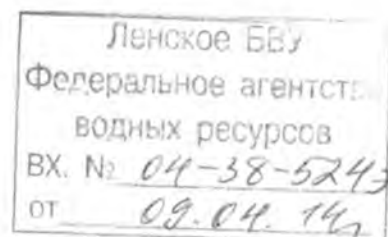 Ленское БВУ
Федеральное агентство
водных ресурсов
ВХ. № 04-38-5243
от 09.04.14г